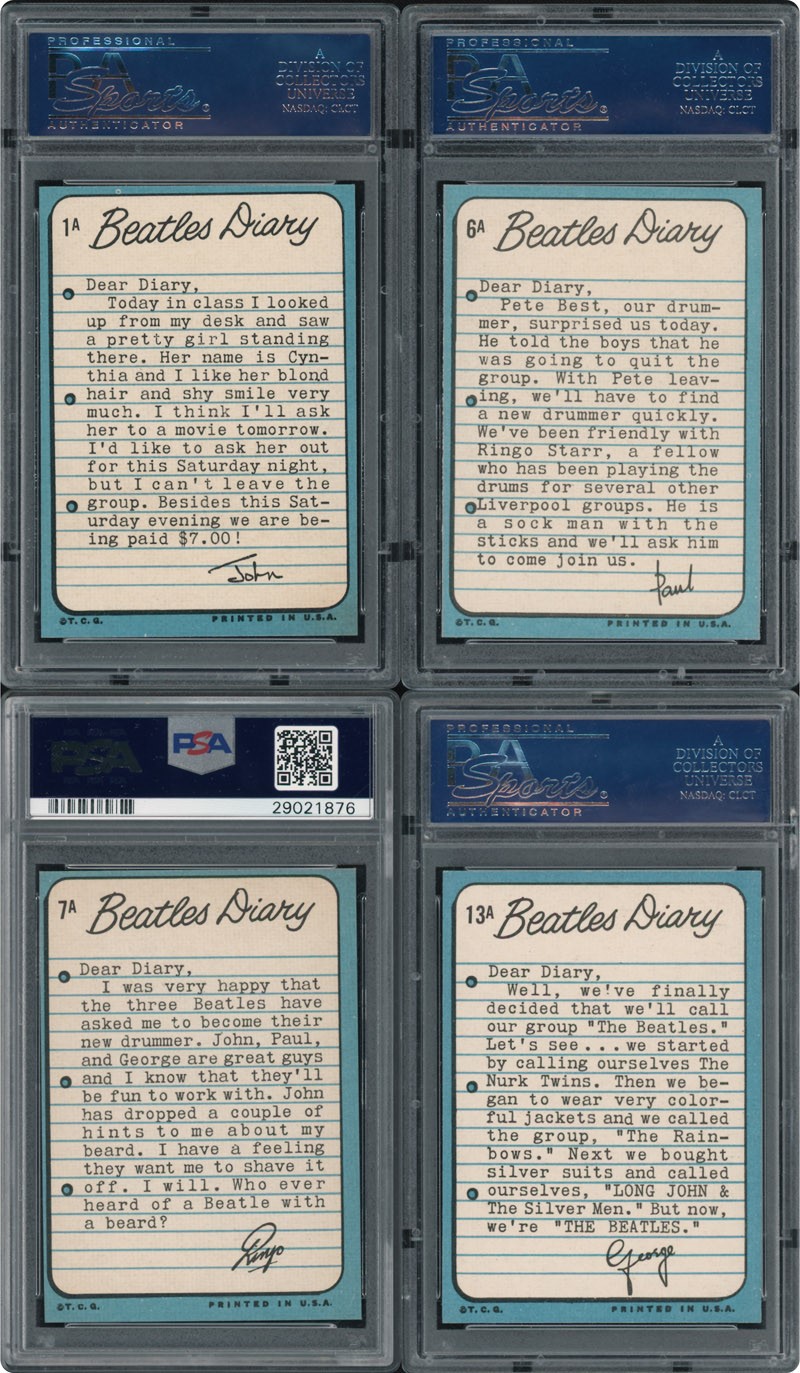 PROFESSIONAL
PSA
Sports®
AUTHENTICATOR
A
DIVISION OF
COLLECTORS
UNIVERSE
NASDAQ: CLCT
1A Beatles Diary
Dear Diary,
Today in class I looked
up from my desk and saw
a pretty girl standing
there. Her name is Cyn-
thia and I like her blond
hair and shy smile very
much. I think I'll ask
her to a movie tomorrow.
I'd like to ask her out
for this Saturday night,
but I can't leave the
group. Besides this Sat-
urday evening we are be-
ing paid $7.00!
John
©T.C.G. PRINTED IN U.S.A.
PROFESSIONAL
PSA
Sports®
AUTHENTICATOR
A
DIVISION OF
COLLECTORS
UNIVERSE
NASDAQ: CLCT
6A Beatles Diary
Dear Diary,
Pete Best, our drum-
mer, surprised us today.
He told the boys that he
was going to quit the
group. With Pete leav-
ing, we'll have to find
a new drummer quickly.
We've been friendly with
Ringo Starr, a fellow
who has been playing the
drums for several other
Liverpool groups. He is
a sock man with the
sticks and we'll ask him
to come join us.
Paul
©T.C.G. PRINTED IN U.S.A.
PSA
PSA
29021876
7A Beatles Diary
Dear Diary,
I was very happy that
the three Beatles have
asked me to become their
new drummer. John, Paul,
and George are great guys
and I know that they'll
be fun to work with. John
has dropped a couple of
hints to me about my
beard. I have a feeling
they want me to shave it
off. I will. Who ever
heard of a Beatle with
a beard?
Ringo
©T.C.G. PRINTED IN U.S.A.
PROFESSIONAL
PSA
Sports®
AUTHENTICATOR
A
DIVISION OF
COLLECTORS
UNIVERSE
NASDAQ: CLCT
13A Beatles Diary
Dear Diary,
Well, we've finally
decided that we'll call
our group "The Beatles."
Let's see...we started
by calling ourselves The
Nurk Twins. Then we be-
gan to wear very color-
ful jackets and we called
the group, "The Rain-
bows." Next we bought
silver suits and called
ourselves, "LONG JOHN &
The Silver Men." But now,
we're "THE BEATLES."
George
©T.C.G. PRINTED IN U.S.A.